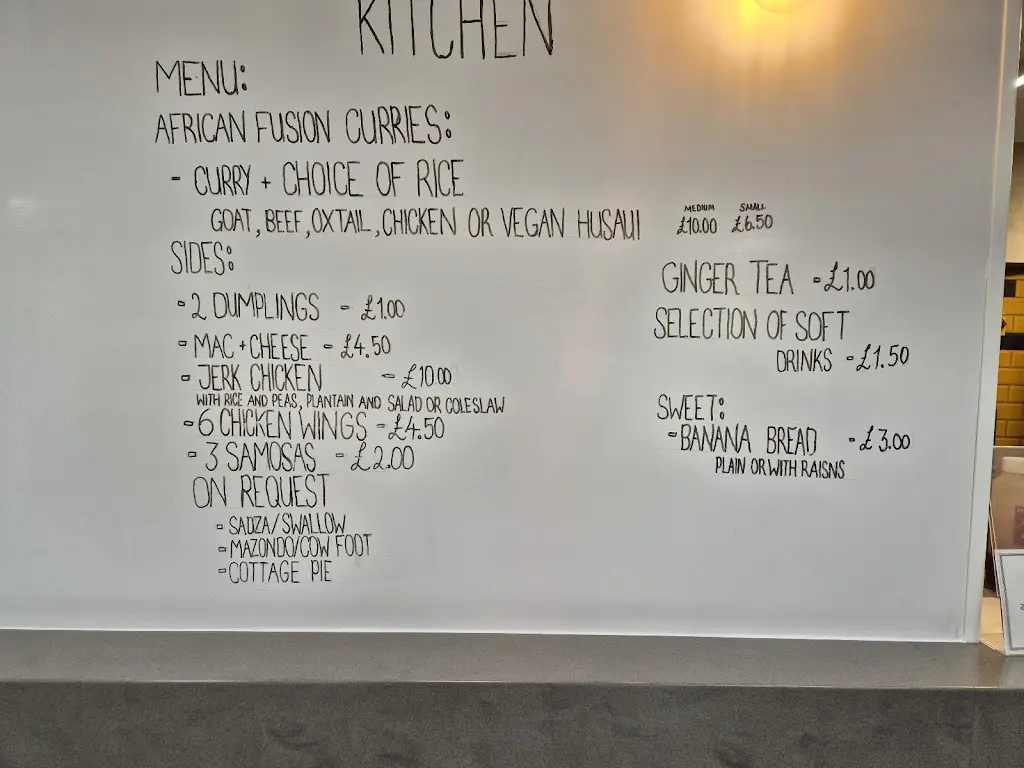 KITCHEN
MENU:
AFRICAN FUSION CURRIES:
- CURRY + CHOICE OF RICE
GOAT, BEEF, OXTAIL, CHICKEN OR VEGAN HUSAUI
MEDIUM SMALL
£10.00 £6.50
SIDES:
- 2 DUMPLINGS - £1.00
- MAC + CHEESE - £4.50
- JERK CHICKEN - £10.00
WITH RICE AND PEAS, PLANTAIN AND SALAD OR COLESLAW
- 6 CHICKEN WINGS - £4.50
- 3 SAMOSAS - £2.00
ON REQUEST
- SADZA/SWALLOW
- MAZONDO/COW FOOT
- COTTAGE PIE
GINGER TEA - £1.00
SELECTION OF SOFT
DRINKS - £1.50
SWEET:
- BANANA BREAD - £3.00
PLAIN OR WITH RAISNS